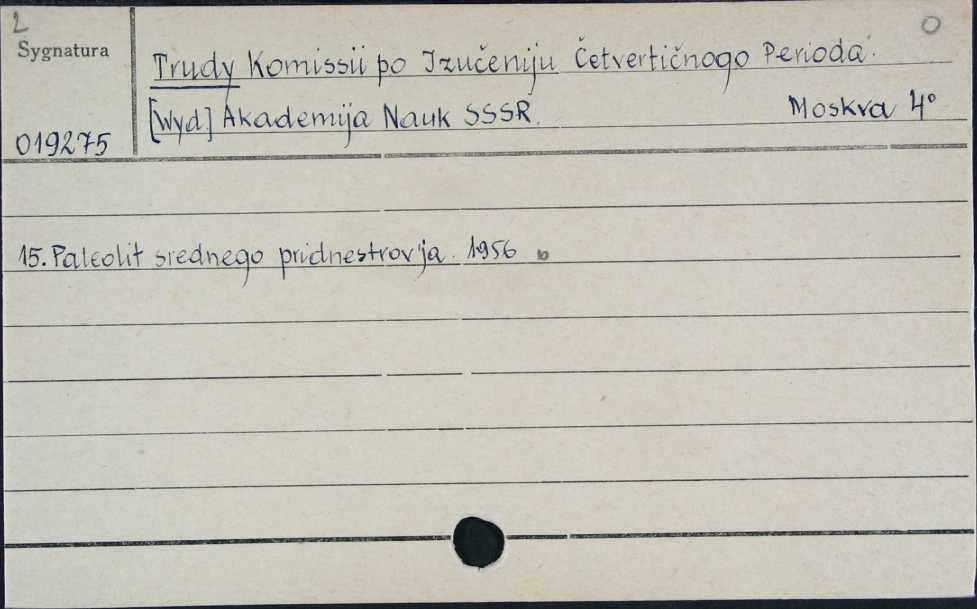 2
0
Sygnatura
Trudy Komissii po Izučeniju Četvertičnogo Perioda.
[Wyd.] Akademija Nauk SSSR. Moskva 4°
019275
15. Paleolit srednego pridnestrov'ja. 1956